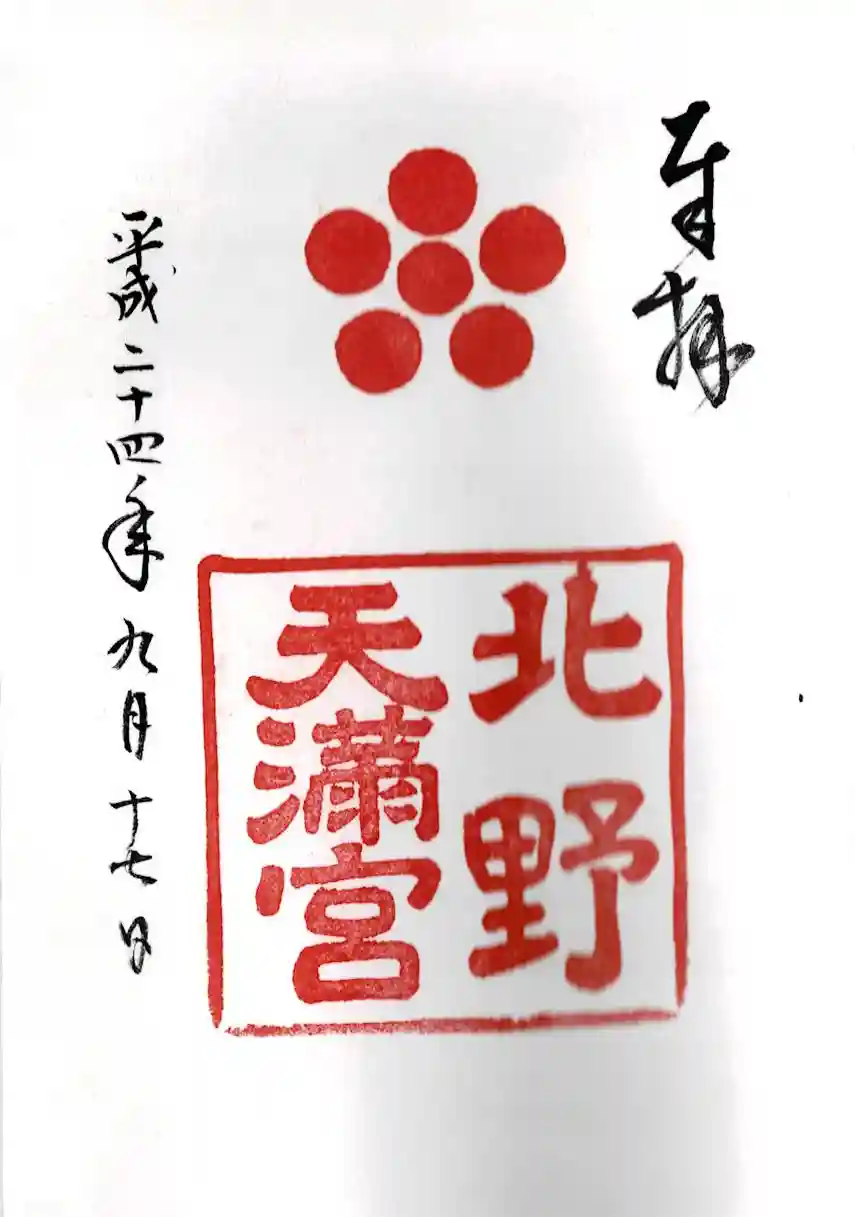 奉拝
北野
天満宮
平成二十四年九月十七日